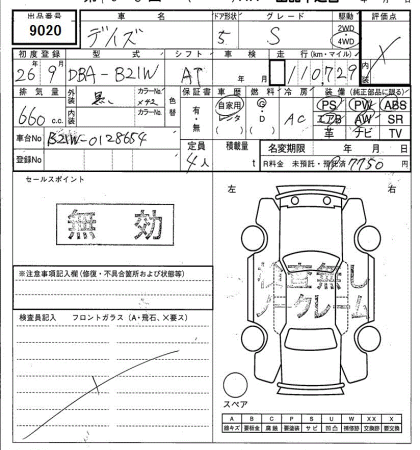 出品番号 車名 ドア形状 グレード 駆動 評価点
9020 デイズ 5 S 2WD 4WD X
初度登録 型式 シフト 車検 走行(km・マイル) 内装
26年9月 DBA-B21W AT 年 月 110,729
排気量 外装 カラーNo. 色替 保証書 車歴 燃料 冷房 装備(純正部品に限る)
660 c.c. 黒 X42 有・無 自家用 レンタ ( ) G・D ( ) AC PS PW ABS
内装 カラーNo. エアB AW SR
車台No B21W-0128654 革 ナビ TV
登録No 定員 4人 積載量 t 名変期限 年 月 日
R料金 未預託・預託済 7750
セールスポイント 左 右
無効
検査無し
ノークレーム
※注意事項記入欄(修復・不具合箇所および状態等)
検査員記入 フロントガラス(A・飛石、×要ス)
スペア
A B C P S U W X XX
線キズ 要板金 腐蝕 要塗装 サビ 凹凸 補修跡 交換跡 要交換